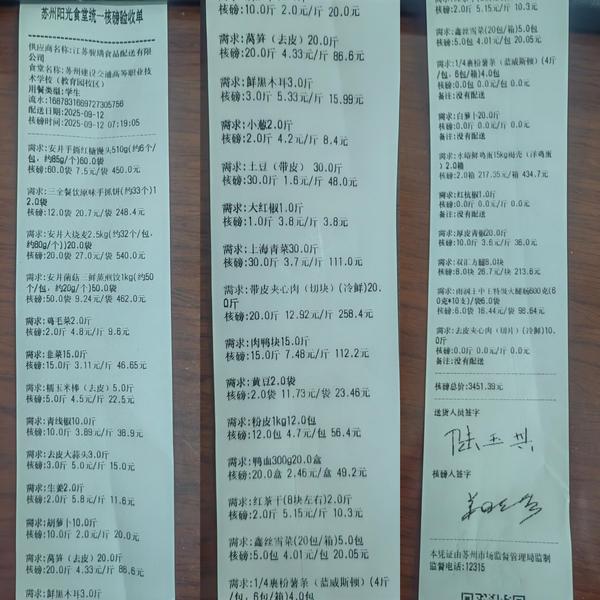 苏州阳光食堂统一核磅验收单
供应商名称:江苏骏瑞食品配送有限
公司
食堂名称:苏州建设交通高等职业技
术学校(教育园校区)
用餐类型:学生
流水:1667831669727305756
配送日期:2025-09-12
核磅时间:2025-09-12 07:19:05
需求:安井手撕红糖馒头510g(约6个/
包,约85g/个)60.0袋
核磅:60.0袋 7.5元/袋 450.0元
需求:三全餐饮原味手抓饼(约33个)1
2.0袋
核磅:12.0袋 20.7元/袋 248.4元
需求:安井大烧麦2.5kg(约32个/包,
约80g/个))20.0袋
核磅:20.0袋 27.0元/袋 540.0元
需求:安井菌菇三鲜蒸煎饺1kg(约50
个/包,约20g/个)50.0袋
核磅:50.0袋 9.24元/袋 462.0元
需求:鸡毛菜2.0斤
核磅:2.0斤 4.8元/斤 9.6元
需求:韭菜15.0斤
核磅:15.0斤 3.11元/斤 46.65元
需求:糯玉米棒(去皮)5.0斤
核磅:5.0斤 4.5元/斤 22.5元
需求:青线椒10.0斤
核磅:10.0斤 3.89元/斤 38.9元
需求:去皮大蒜头3.0斤
核磅:3.0斤 5.0元/斤 15.0元
需求:生姜2.0斤
核磅:2.0斤 5.8元/斤 11.6元
需求:胡萝卜10.0斤
核磅:10.0斤 2.0元/斤 20.0元
需求:莴笋(去皮)20.0斤
核磅:20.0斤 4.33元/斤 86.6元
需求:鲜黑木耳3.0斤
核磅:10.0斤 2.0元/斤 20.0元
需求:莴笋(去皮)20.0斤
核磅:20.0斤 4.33元/斤 86.6元
需求:鲜黑木耳3.0斤
核磅:3.0斤 5.33元/斤 15.99元
需求:小葱2.0斤
核磅:2.0斤 4.2元/斤 8.4元
需求:土豆(带皮) 30.0斤
核磅:30.0斤 1.6元/斤 48.0元
需求:大红椒1.0斤
核磅:1.0斤 3.8元/斤 3.8元
需求:上海青菜30.0斤
核磅:30.0斤 3.7元/斤 111.0元
需求:带皮夹心肉(切块)(冷鲜)20.
0斤
核磅:20.0斤 12.92元/斤 258.4元
需求:肉鸭块15.0斤
核磅:15.0斤 7.48元/斤 112.2元
需求:黄豆2.0袋
核磅:2.0袋 11.73元/袋 23.46元
需求:粉皮1kg12.0包
核磅:12.0包 4.7元/包 56.4元
需求:鸭血300g20.0盒
核磅:20.0盒 2.46元/盒 49.2元
需求:红茶干(8块左右)2.0斤
核磅:2.0斤 5.15元/斤 10.3元
需求:鑫丝雪菜(20包/箱)5.0包
核磅:5.0包 4.01元/包 20.05元
需求:1/4裹粉薯条(蓝威斯顿)(4斤
/包,6包/箱)4.0包
核磅:2.0斤 5.15元/斤 10.3元
需求:鑫丝雪菜(20包/箱)5.0包
核磅:5.0包 4.01元/包 20.05元
需求:1/4裹粉薯条(蓝威斯顿)(4斤
/包,6包/箱)4.0包
核磅:0.0包 0.0元/包 0.0元
备注:没有配送
需求:白萝卜20.0斤
核磅:0.0斤 0.0元/斤 0.0元
备注:没有配送
核磅:2.0箱 217.35元/箱 434.7元
核磅:0.0斤 0.0元/斤 0.0元
备注:没有配送
需求:厚皮青椒20.0斤
核磅:10.0斤 3.6元/斤 36.0元
需求:双汇方腿8.0块
核磅:8.0块 26.7元/块 213.6元
需求:雨润王中王特级火腿肠600克(6
0克*10支)/袋6.0袋
核磅:6.0袋 16.44元/袋 98.64元
需求:去皮夹心肉(切片)(冷鲜)10.
0斤
核磅:0.0斤 0.0元/斤 0.0元
备注:没有配送
核磅总价:3451.39元
送货人员签字
核磅人签字
本凭证由苏州市场监督管理局监制
监督电话:12315